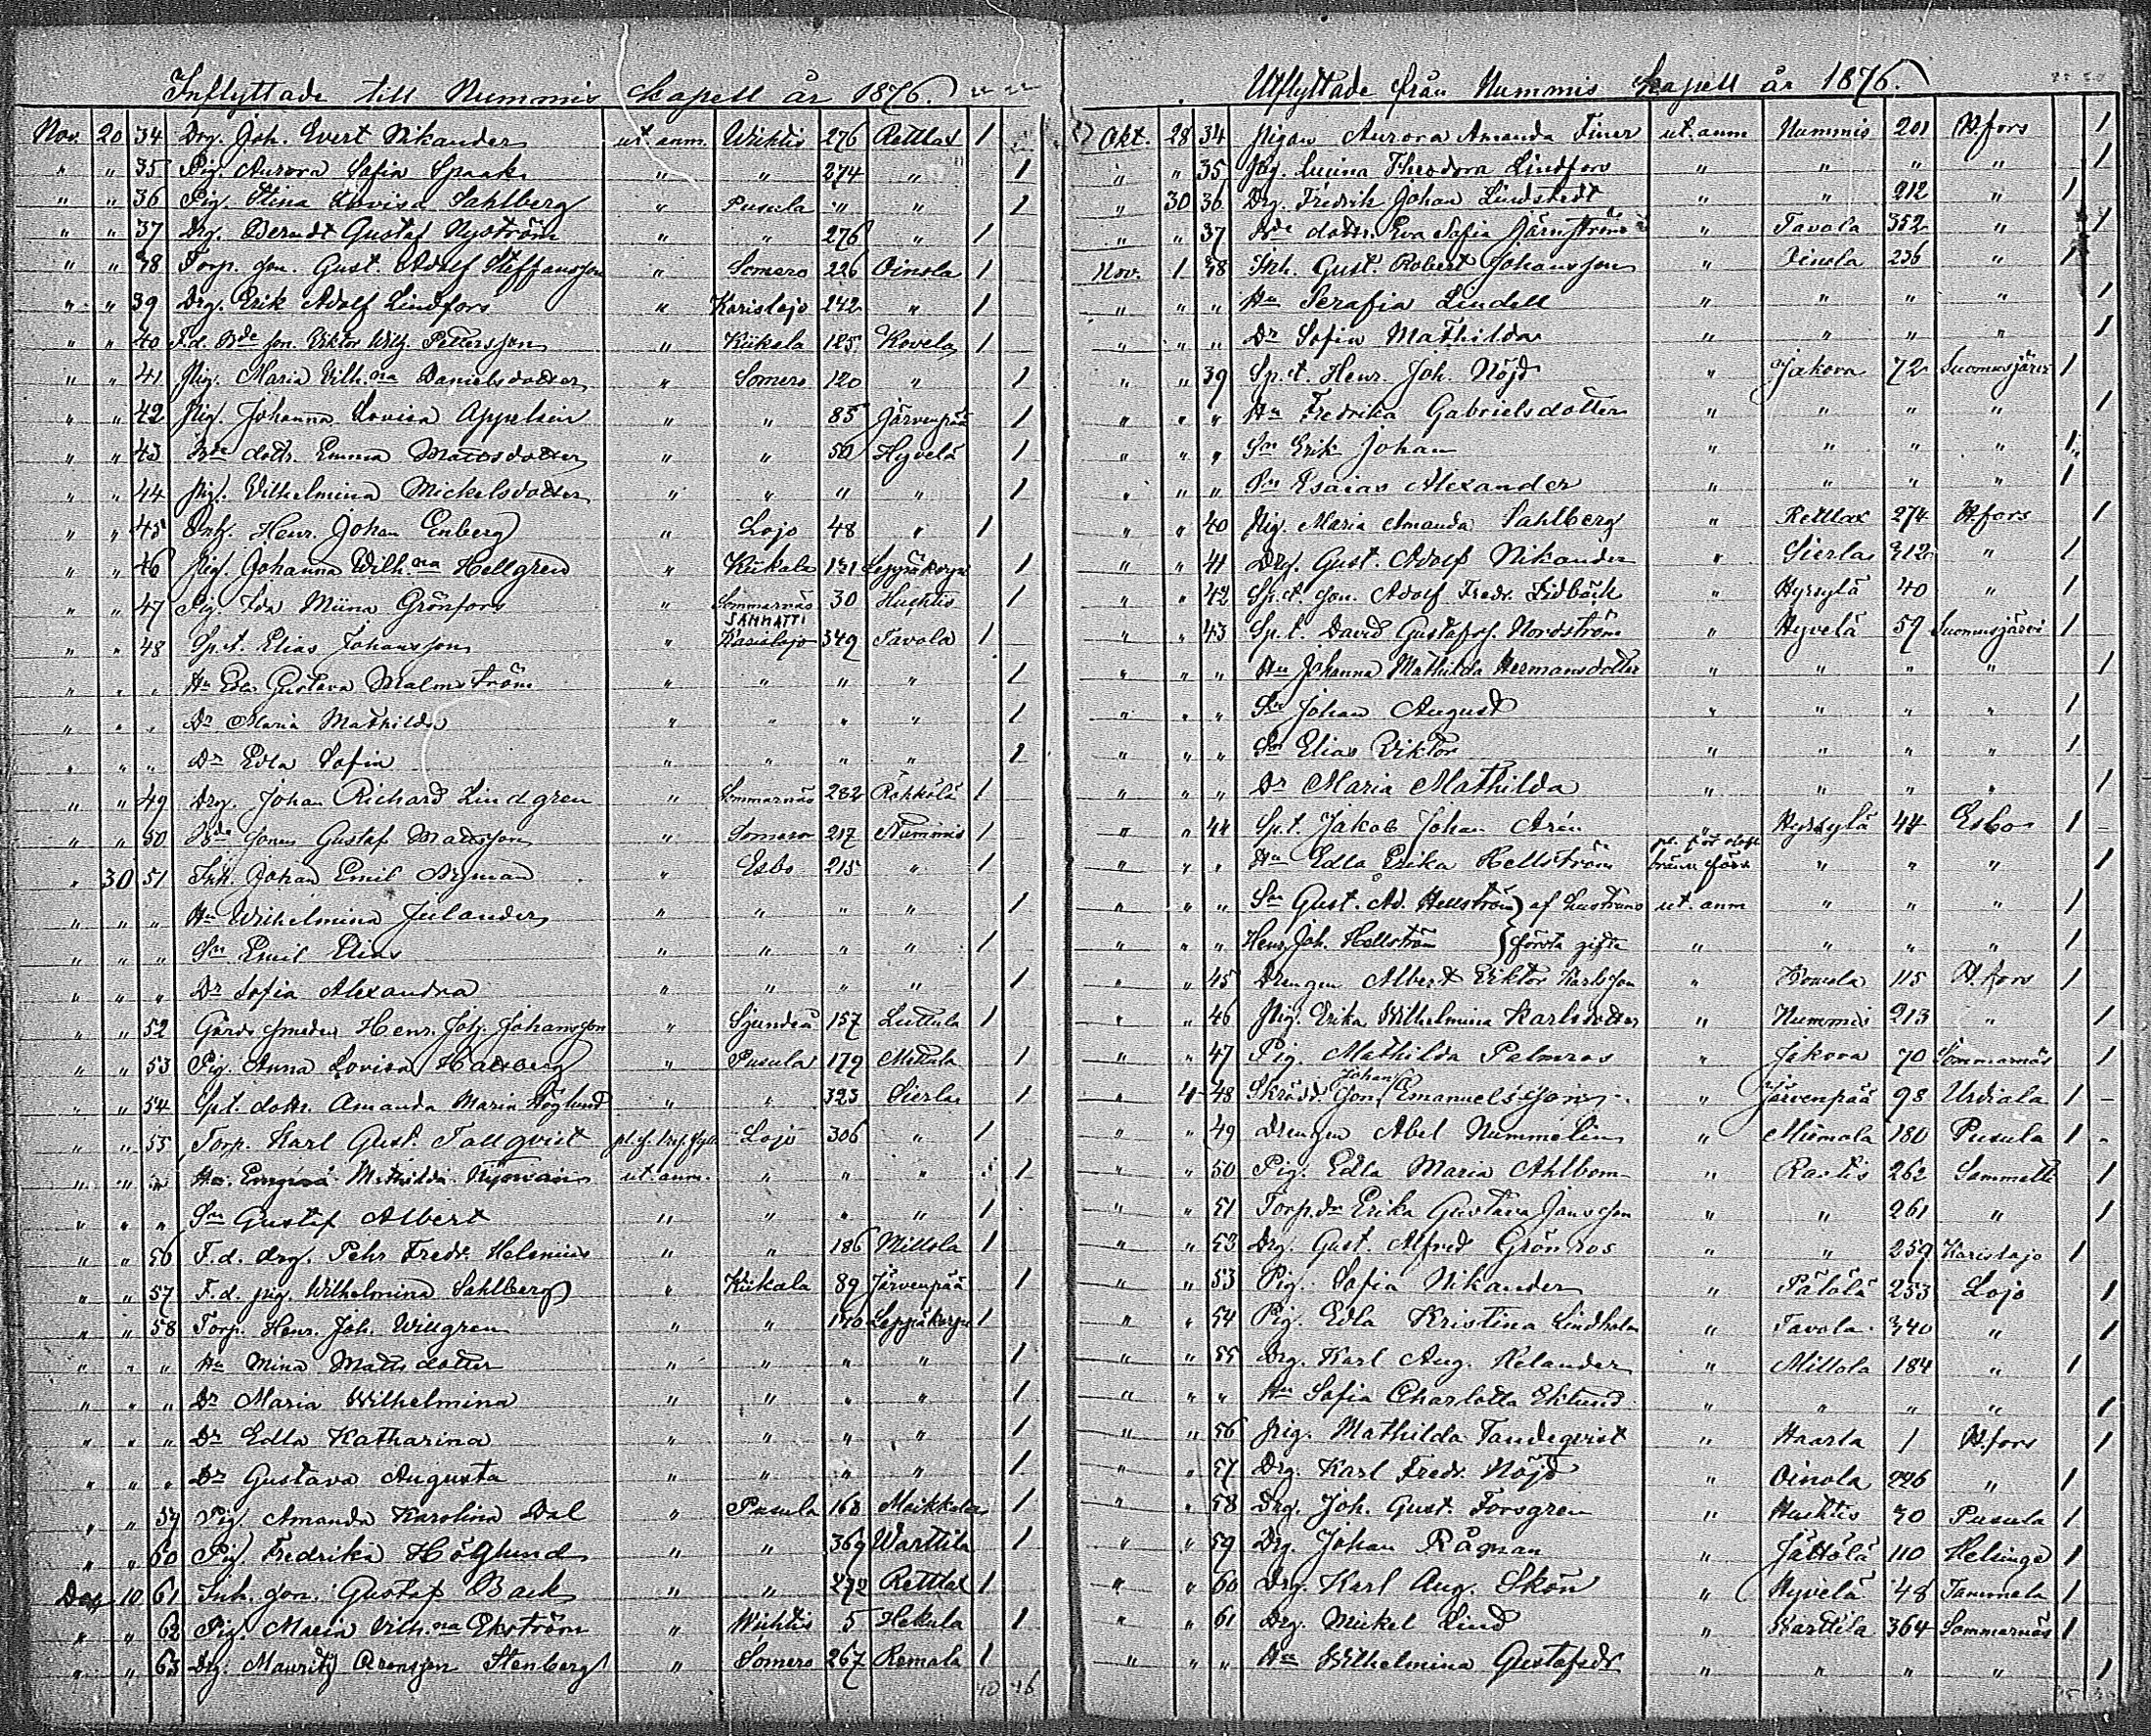 Inflyttade till Nummis kapell år 1876.
Nov. 20 34 Drg. Joh. Evert Nikander ut. anm. Wichtis 276 Rettlax 1
" " 35 Pig. Aurora Sofia Spaak " " 274 " 1
" " 36 Pig. Stina Lovisa Sahlberg " Pusula " " 1
" " 37 Drg. Berndt Gustaf Nyström " " 276 " 1
" " 38 Torp. son. Gust. Adolf Steffansson " Somero 226 Oinola 1
" " 39 Drg. Erik Adolf Lindfors " Karislojo 242 " 1
" " 40 F.d. Bde son. Viktor Wilh. Pettersson " Kiikala 125 Kovela 1
" " 41 Pig. Maria Vilh.na Danielsdotter " Somero 120 " 1
" " 42 Pig. Johanna Lovisa " " 85 Järvenpää 1
" " 43 Bde dottr. Emma Mattsdotter " " 50 Hyvelä 1
" " 44 Pig. Vilhelmina Mickelsdotter " " " " 1
" " 45 Henr. Johan Enberg " Lojo 48 " 1
" " 46 Pig. Johanna Wilh.na Hellgren " Kiikala 131 Leppäkorpi 1
" " 47 Pig. Ida Miina Grönfors " Sommarnäs 30 Huhtis 1
SAMMATTI
" " 48 Sp.t. Elias Johansson " Karislojo 349 Tavola 1
" " " Hu Edla Gustava Malmström " " " " 1
" " " Dr Maria Mathilda " " " " 1
" " " Dr Edla Sofia " " " " 1
" " 49 Drg. Johan Richard Lindgren " Sommarnäs 282 Röhkölä 1
" " 50 Bde sonen Gustaf Mattsson " Somero 217 Nummis 1
" 30 51 Inh. Johan Emil " Esbo 215 " 1
" " " Hu Wilhelmina Julander " " " " 1
" " " Sn Emil Elias " " " " 1
" " " Dr Sofia Alexandra " " " " 1
" " 52 Gårds smeden Henr. Joh. Johansson " Sjundeå 157 Luttula 1
" " 53 Pig. Anna Lovisa " Pusula 179 1
" " 54 Sp.t. dottr. Amanda Maria Höglund " " 323 Sierla 1
" " 55 Torp. Karl Gust. Tallqvist Lojo 306 " 1
" " " Hu. Mathilda ut. anm. " " " 1
" " " Sn Gustaf Albert " " " " 1
" " 56 F.d. drg. Pehr Fredr. Helenius " " 186 Millola 1
" " 57 F.d. pig. Wilhelmina Sahlberg " Kiikala 89 Järvenpää 1
" " 58 Torp. Henr. Joh. Willgren " " 140 Leppäkorpi 1
" " " Hu Mina Mattsdotter " " " " 1
" " " Dr Maria Wilhelmina " " " " 1
" " " Dr Edla Katharina " " " " 1
" " " Dr Gustava Augusta " " " " 1
" " 59 Pig. Amanda Karolina Dal " Pusula 168 Maikkala 1
" " 60 Pig. Fredrika Höglund " " 369 Warttila 1
Dec. 10 61 Inh. son. Gustaf Back " " 272 Rettlax 1
" " 62 Pig. Maria Vilh.na Ekström " Wichtis 5 Hekula 1
" " 63 Drg. Mauritz Aronsson Stenberg " Somero 267 Remala 1
40 46
Utflyttade från Nummis kapell år 1876.
Okt. 28 34 Pigan Aurora Amanda Finer ut. anm Nummis 201 H.fors 1
" " 35 Pig. Theodora Lindfors " " " " 1
" 30 36 Drg. Fredrik Johan Lindstedt " " 212 " 1
" " 37 Bde dottr. Eva Sofia Järnström " Tavola 352 " 1
Nov. 1 38 Inh. Gust. Robert Johansson " Oinola 236 " 1
" " " Hu Serafia Lindell " " " " 1
" " " Dr Sofia Mathilda " " " " 1
" " 39 Sp.t. Henr. Joh. Nöjd " Jakova 72 Suomusjärvi 1
" " " Hu Fredrika Gabrielsdotter " " " " 1
" " " Sn Erik Johan " " " " 1
" " " Sn Esaias Alexander " " " " 1
" " 40 Pig. Maria Amanda Sahlberg " Rettlax 274 H.fors 1
" " 41 Drg. Gust. Adolf Nikander " Sierla 312 " 1
" " 42 Sp.t. son. Adolf Fredr. Lidbäck " Hyrsylä 40 " 1
" " 43 Sp.t. David Gustafss. Nordström " Hyvelä 57 Suomusjärvi 1
" " " Hu Johanna Mathilda Hermansdotter " " " " 1
" " " Sn Johan August " " " " 1
" " " Sn Elias Viktor " " " " 1
" " " Dr Maria Mathilda " " " " 1
" " 44 Sp.t. Jakob Johan Arén Hyrsylä 44 Esbo 1
" " " Hu Edla Erika Hellström " " " 1
" " " Sn Gust. Ad. Hellström } af hustruns ut. anm " " " 1
" " " Henr. Joh. Hellström } första gifte " " " " 1
" " 45 Drengen Albert Viktor Karlsson " 115 H.fors 1
" " 46 Pig. Erika Wilhelmina Karlsdotter " Nummis 213 " 1
" " 47 Pig. Mathilda Palmros " Jakova 70 Sommarnäs 1
" 4 48 Skrädd. son. Johan Emanuelsson " Järvenpää 98 Urdiala 1
" " 49 Drengen Abel Nummelin " Miemola 180 Pusula 1
" " 50 Pig. Edla Maria Ahlbom " Rastis 262 Sammatti 1
" " 51 Torp. dr Erika Gustava Jansson " " 261 " 1
" " 53 Drg. Gust. Alfred Grönroos " " 259 Karislojo 1
" " 53 Pig. Sofia Nikander " Pälölä 253 Lojo 1
" " 54 Pig. Edla Kristina Lindholm " Tavola 340 " 1
" " 55 Drg. Karl Aug. Relander " Millola 184 " 1
" " " Hu Sofia Charlotta Eklund " " " " 1
" " 56 Pig. Mathilda Tandeqvist " Haarla 1 H.fors 1
" " 57 Drg. Karl Fredr. Nöjd " Oinola 226 " 1
" " 58 Drg. Joh. Gust. Forsgren " Huhtis 30 Pusula 1
" " 59 Drg. Johan Rågman " Jättölä 110 Helsinge 1
" " 60 Drg. Karl Aug. Skön " Hyvelä 48 Tammela 1
" " 61 Drg. Mickel Lind " Warttila 364 Sommarnäs 1
" " " Hu Wilhelmina Gustafsdr " " " " 1